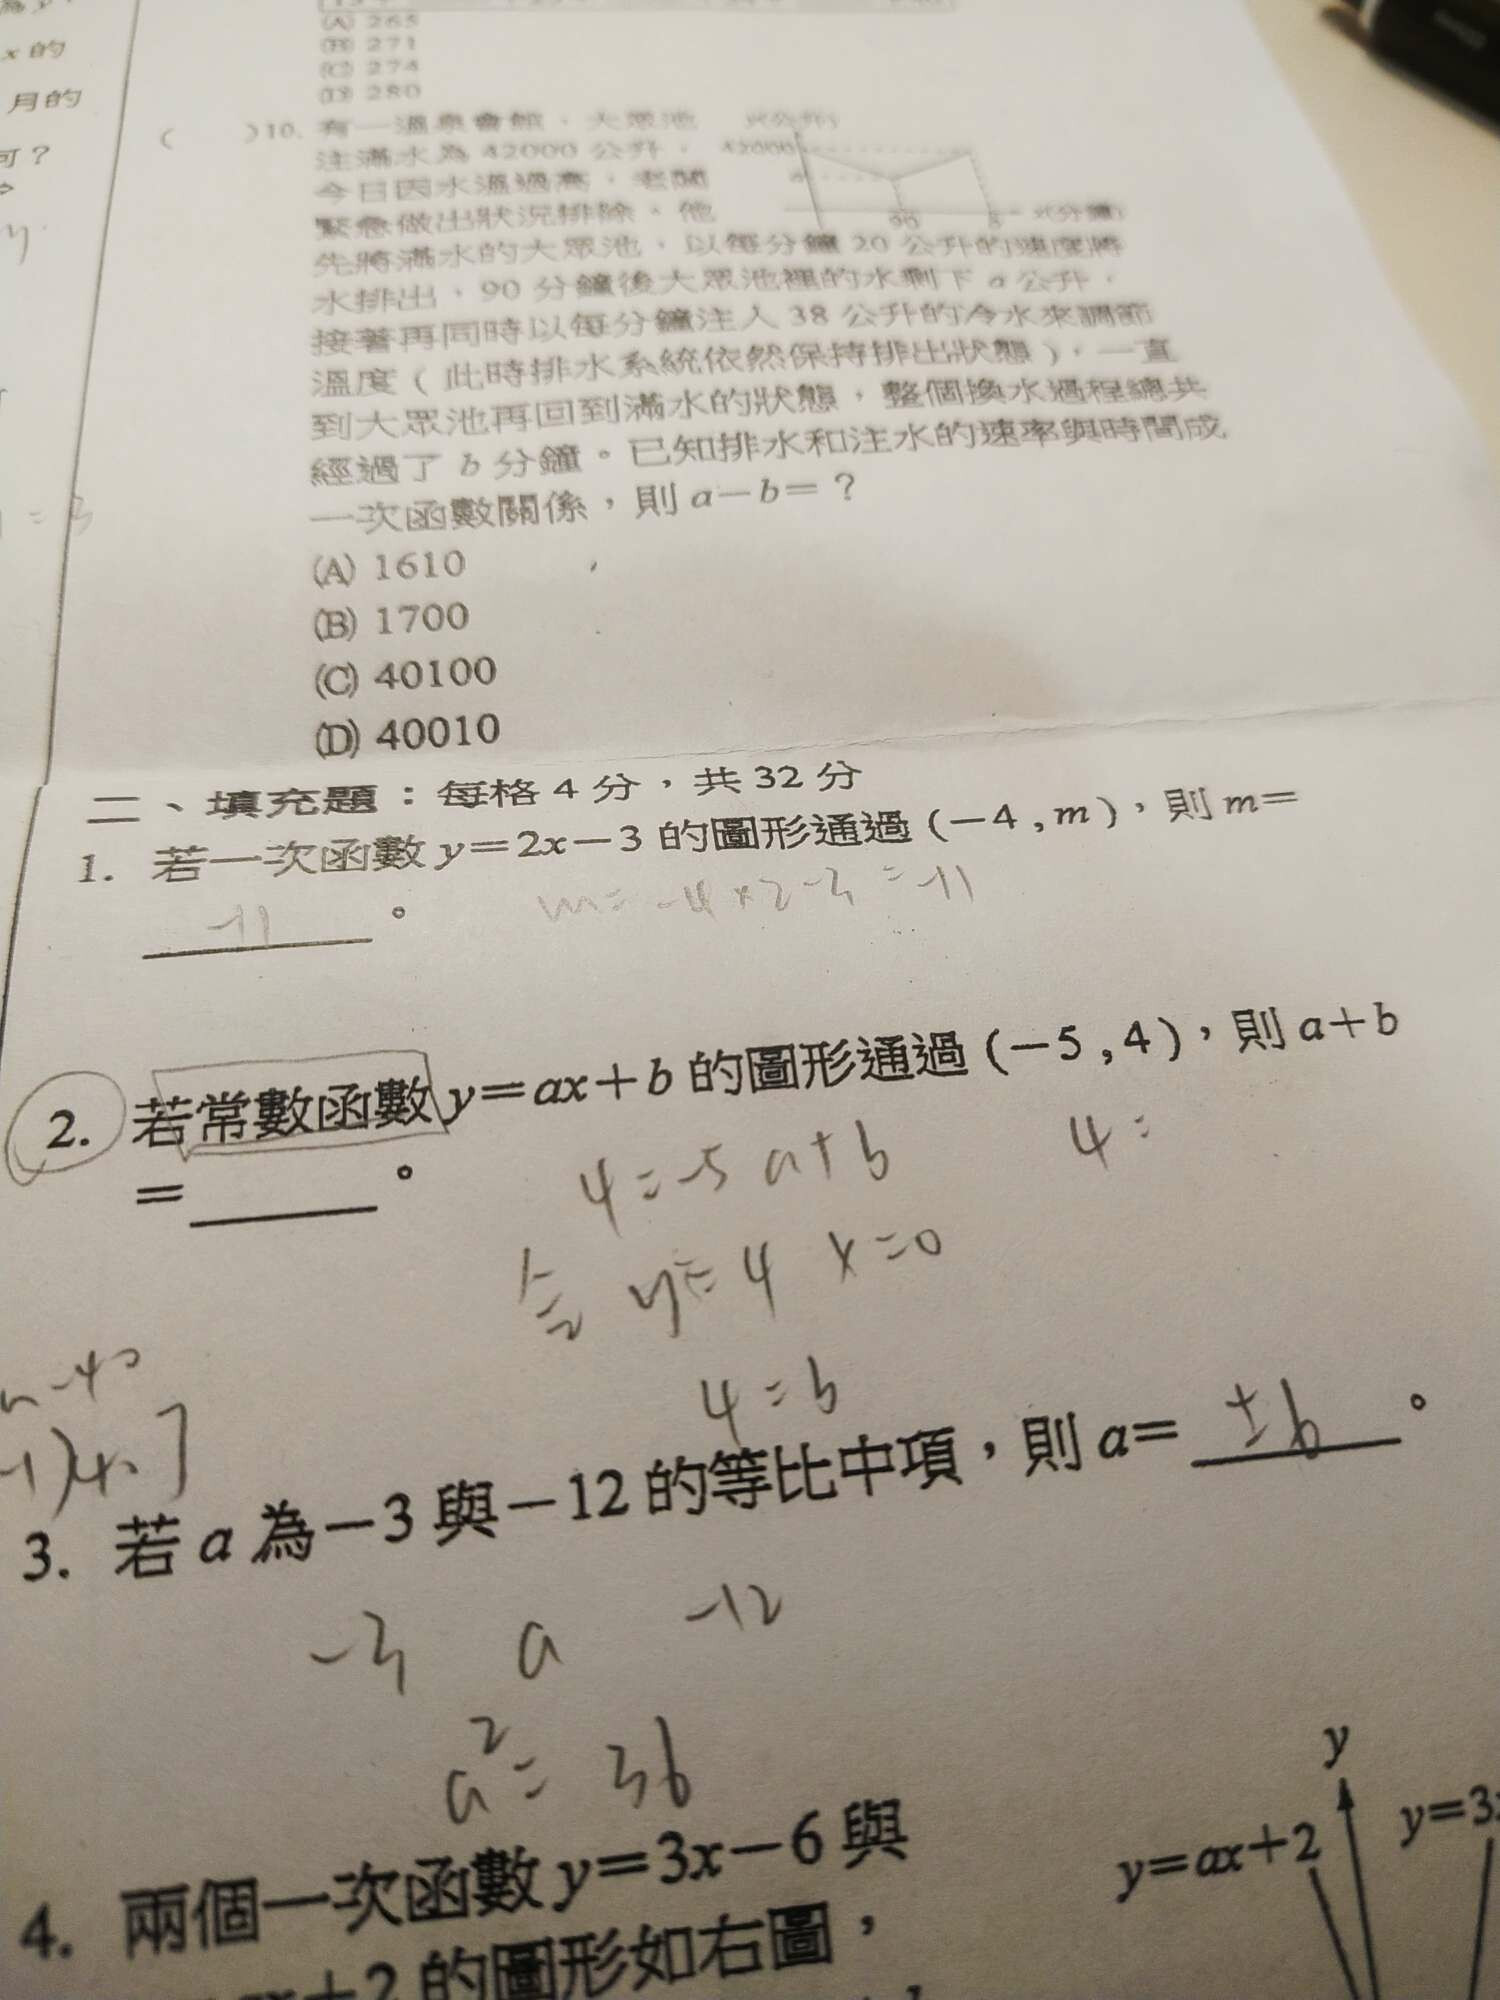 x的
月的
可？
= 3
(A) 265
(B) 271
(C) 274
(D) 280
( )10. 有一溫泉會館，大眾池
注滿水為 42000 公升，
今日因水溫過高，老闆
緊急做出狀況排除，他
先將滿水的大眾池，以每分鐘 20 公升的速度將
水排出，90 分鐘後大眾池裡的水剩下 a 公升，
接著再同時以每分鐘注入 38 公升的冷水來調節
溫度（此時排水系統依然保持排出狀態），一直
到大眾池再回到滿水的狀態，整個換水過程總共
經過了 b 分鐘。已知排水和注水的速率與時間成
一次函數關係，則 a－b＝？
y(公升)
42000
a
90
b
x(分鐘)
(A) 1610
(B) 1700
(C) 40100
(D) 40010
二、填充題：每格 4 分，共 32 分
1. 若一次函數 y＝2x－3 的圖形通過 (－4 , m)，則 m＝
-11 。
m= -4×2-3 = -11
2. 若常數函數 y＝ax＋b 的圖形通過 (－5 , 4)，則 a＋b
＝ 。
4=-5a+b
4=
令 y=4 x=0
4=b
3. 若 a 為－3 與－12 的等比中項，則 a＝ ±6 。
-3 a -12
a²= 36
4. 兩個一次函數 y＝3x－6 與
ax＋2 的圖形如右圖，
y
y＝ax＋2
y＝3